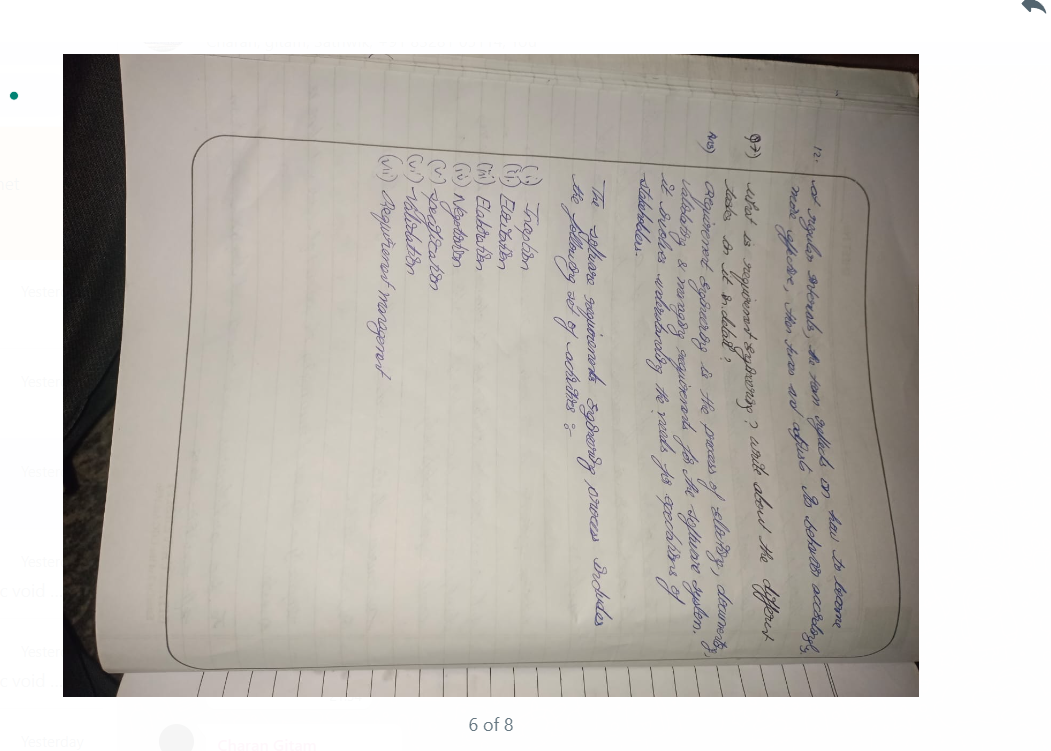 12. at regular intervals, the team reflects on how to become
more effective, then tunes and adjusts its behavior accordingly
Q7) What is requirement Engineering? write about the different
tasks in it in detail?
Ans) Requirement Engineering is the process of eliciting, documenting,
& managing requirements for the software system.
It involves understanding the needs for expectations of
stakeholders.
The software requirements Engineering process includes
the following set of activities :-
(i) Inception
(ii) Elicitation
(iii) Elaboration
(iv) Negotiation
(v) specification
(vi) validation
(vii) Requirement management
6 of 8
Yesterday
Charan Gitam